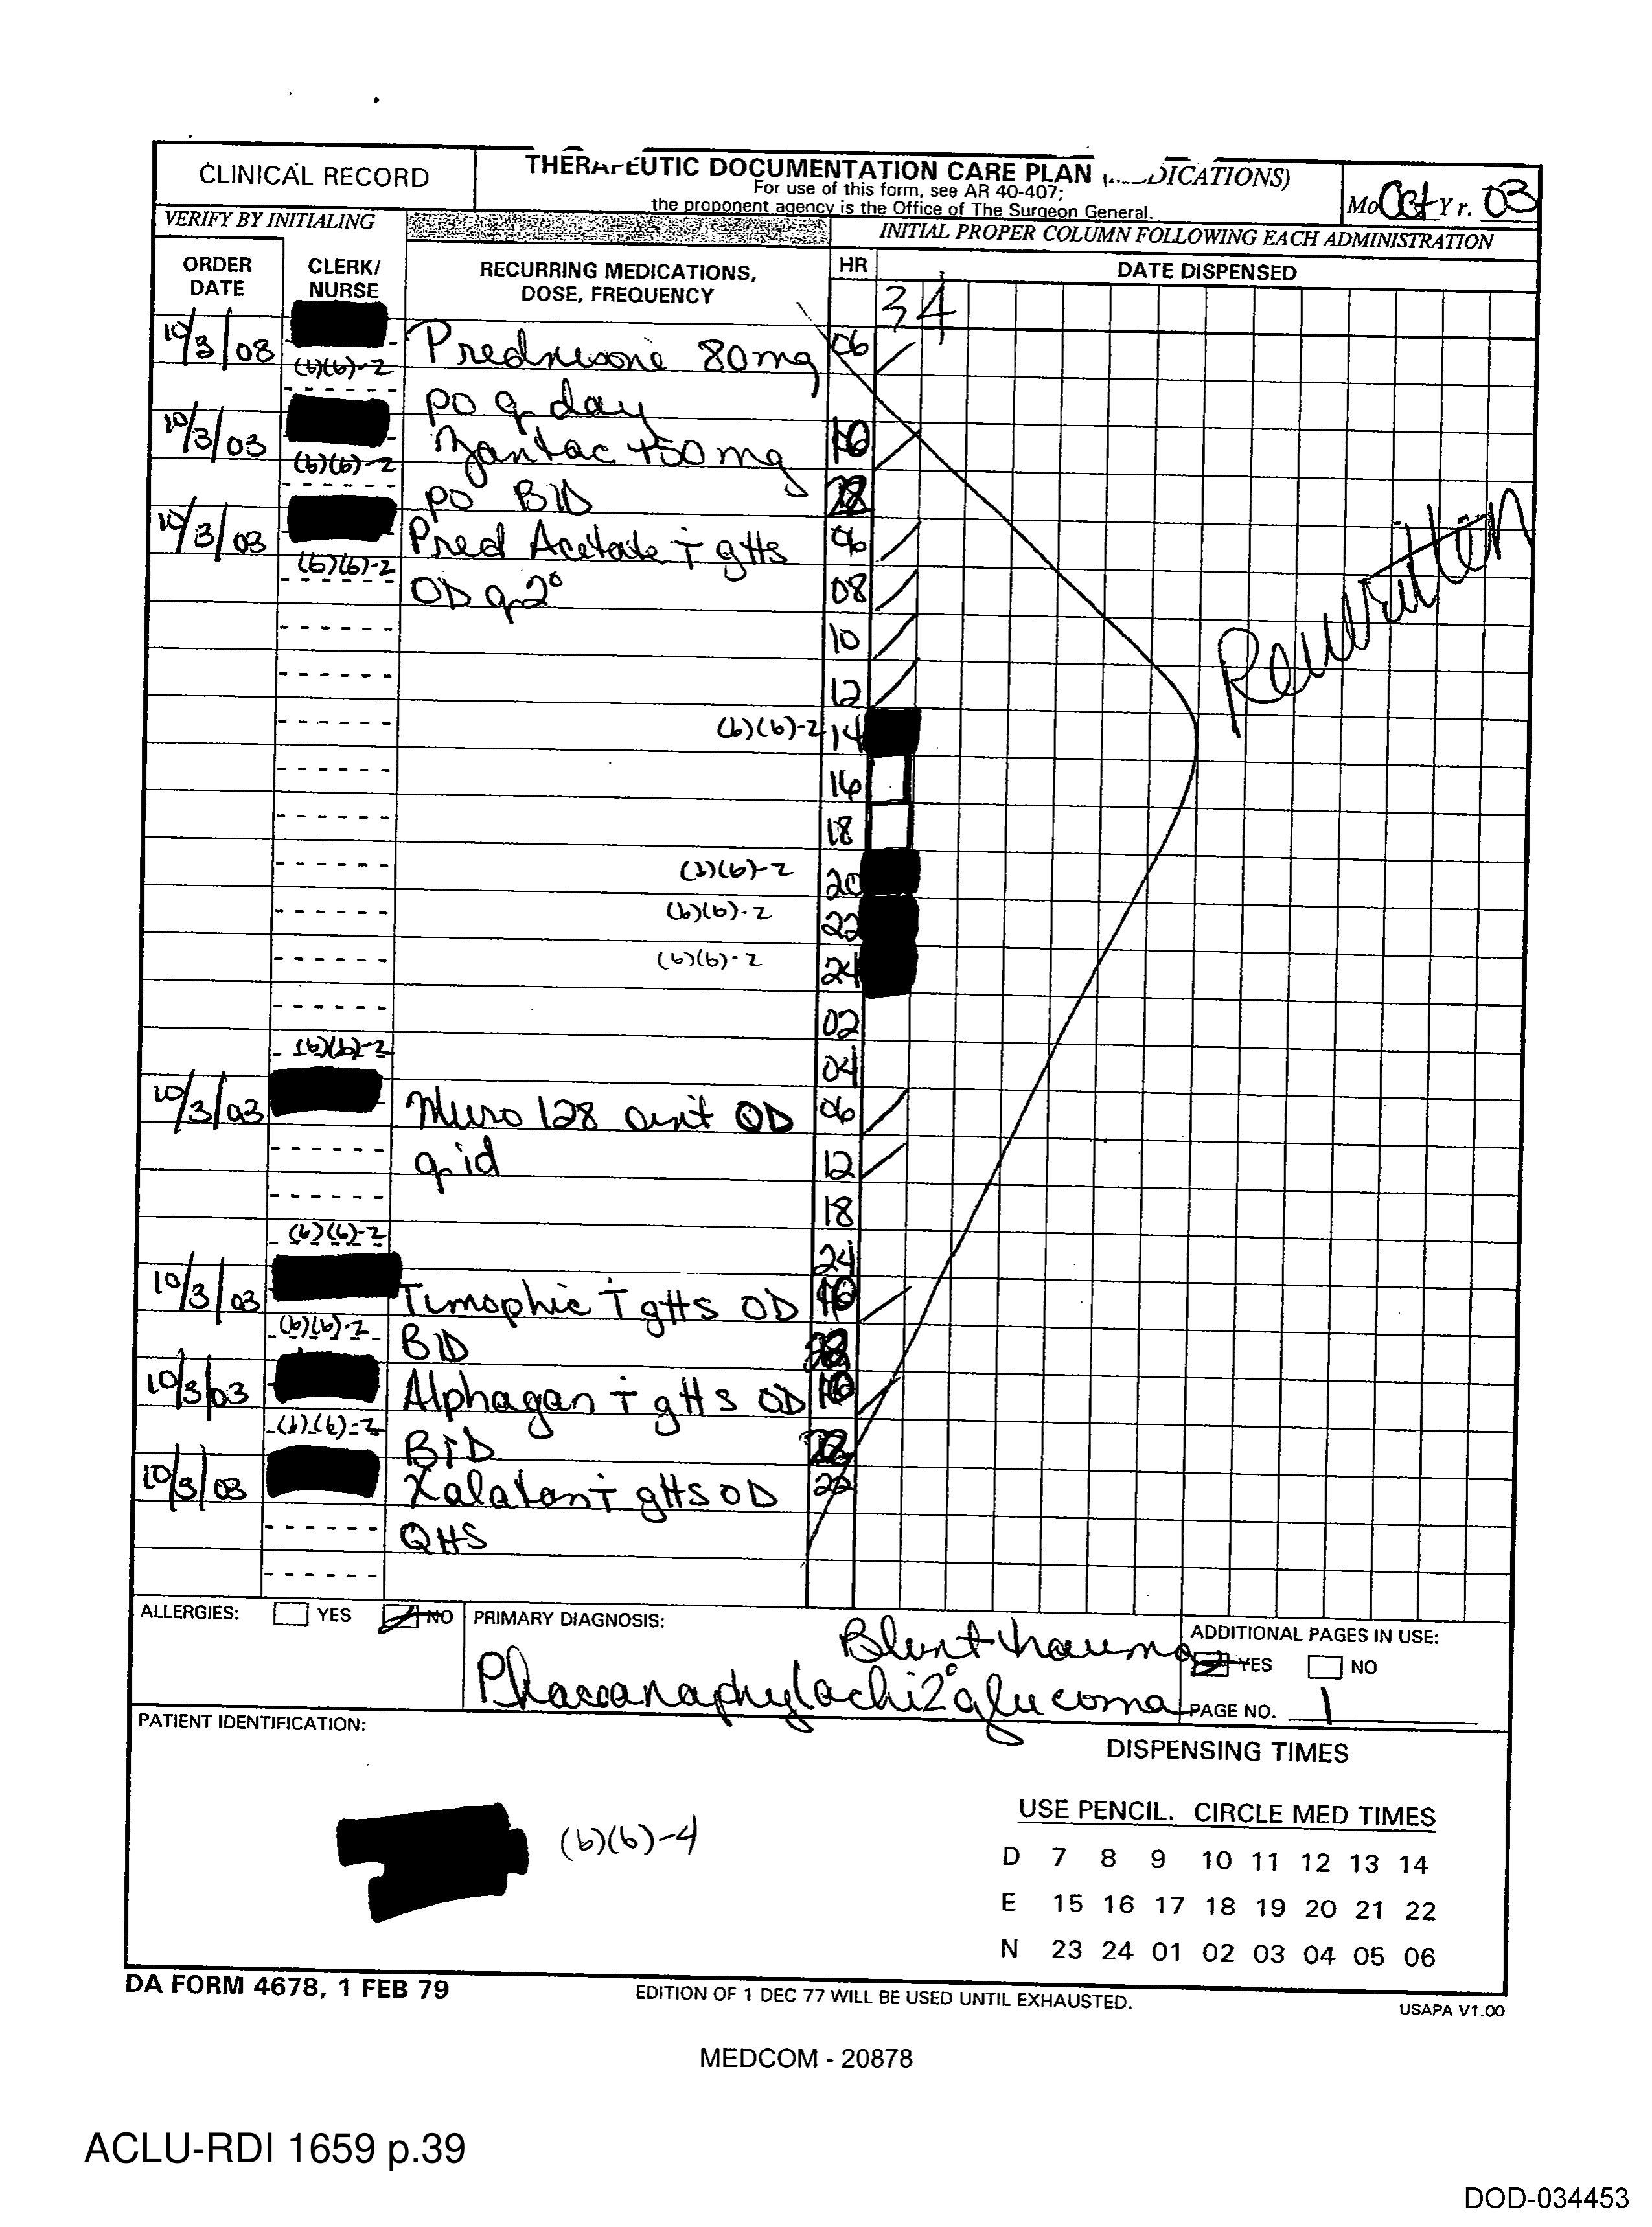 CLINICAL RECORD
THERAPEUTIC DOCUMENTATION CARE PLAN (MEDICATIONS)
For use of this form, see AR 40-407;
the proponent agency is the Office of The Surgeon General.
Mo Oct Yr. 03
VERIFY BY INITIALING
INITIAL PROPER COLUMN FOLLOWING EACH ADMINISTRATION
ORDER DATE
CLERK/ NURSE
RECURRING MEDICATIONS, DOSE, FREQUENCY
HR
DATE DISPENSED
3 4
10/3/03 Prednisone 80mg 06
(b)(6)-2
po q day
10/3/03 Zantac 150mg 10
(b)(6)-2
po BID 22
10/3/03 Pred Acetate T gtts 06
(b)(6)-2
OD q2° 08
10
12
(b)(6)-2 14
16
18
(b)(6)-2 20
(b)(6)-2 22
(b)(6)-2 24
02
(b)(6)-2 04
10/3/03 Muro 128 oint OD 06
qid 12
18
(b)(6)-2 24
10/3/03 Timophic T gtts OD 10
(b)(6)-2 BID
10/3/03 Alphagan T gtts OD 10
(b)(6)-2 BID 22
10/3/03 Xalatan T gtts OD 22
QHS
Rewritten
ALLERGIES: YES NO
PRIMARY DIAGNOSIS:
Blunt trauma
2° glucoma
ADDITIONAL PAGES IN USE:
YES NO
PAGE NO. 1
PATIENT IDENTIFICATION:
(b)(6)-4
DISPENSING TIMES
USE PENCIL. CIRCLE MED TIMES
D 7 8 9 10 11 12 13 14
E 15 16 17 18 19 20 21 22
N 23 24 01 02 03 04 05 06
DA FORM 4678, 1 FEB 79
EDITION OF 1 DEC 77 WILL BE USED UNTIL EXHAUSTED.
USAPA V1.00
MEDCOM - 20878
ACLU-RDI 1659 p.39
DOD-034453